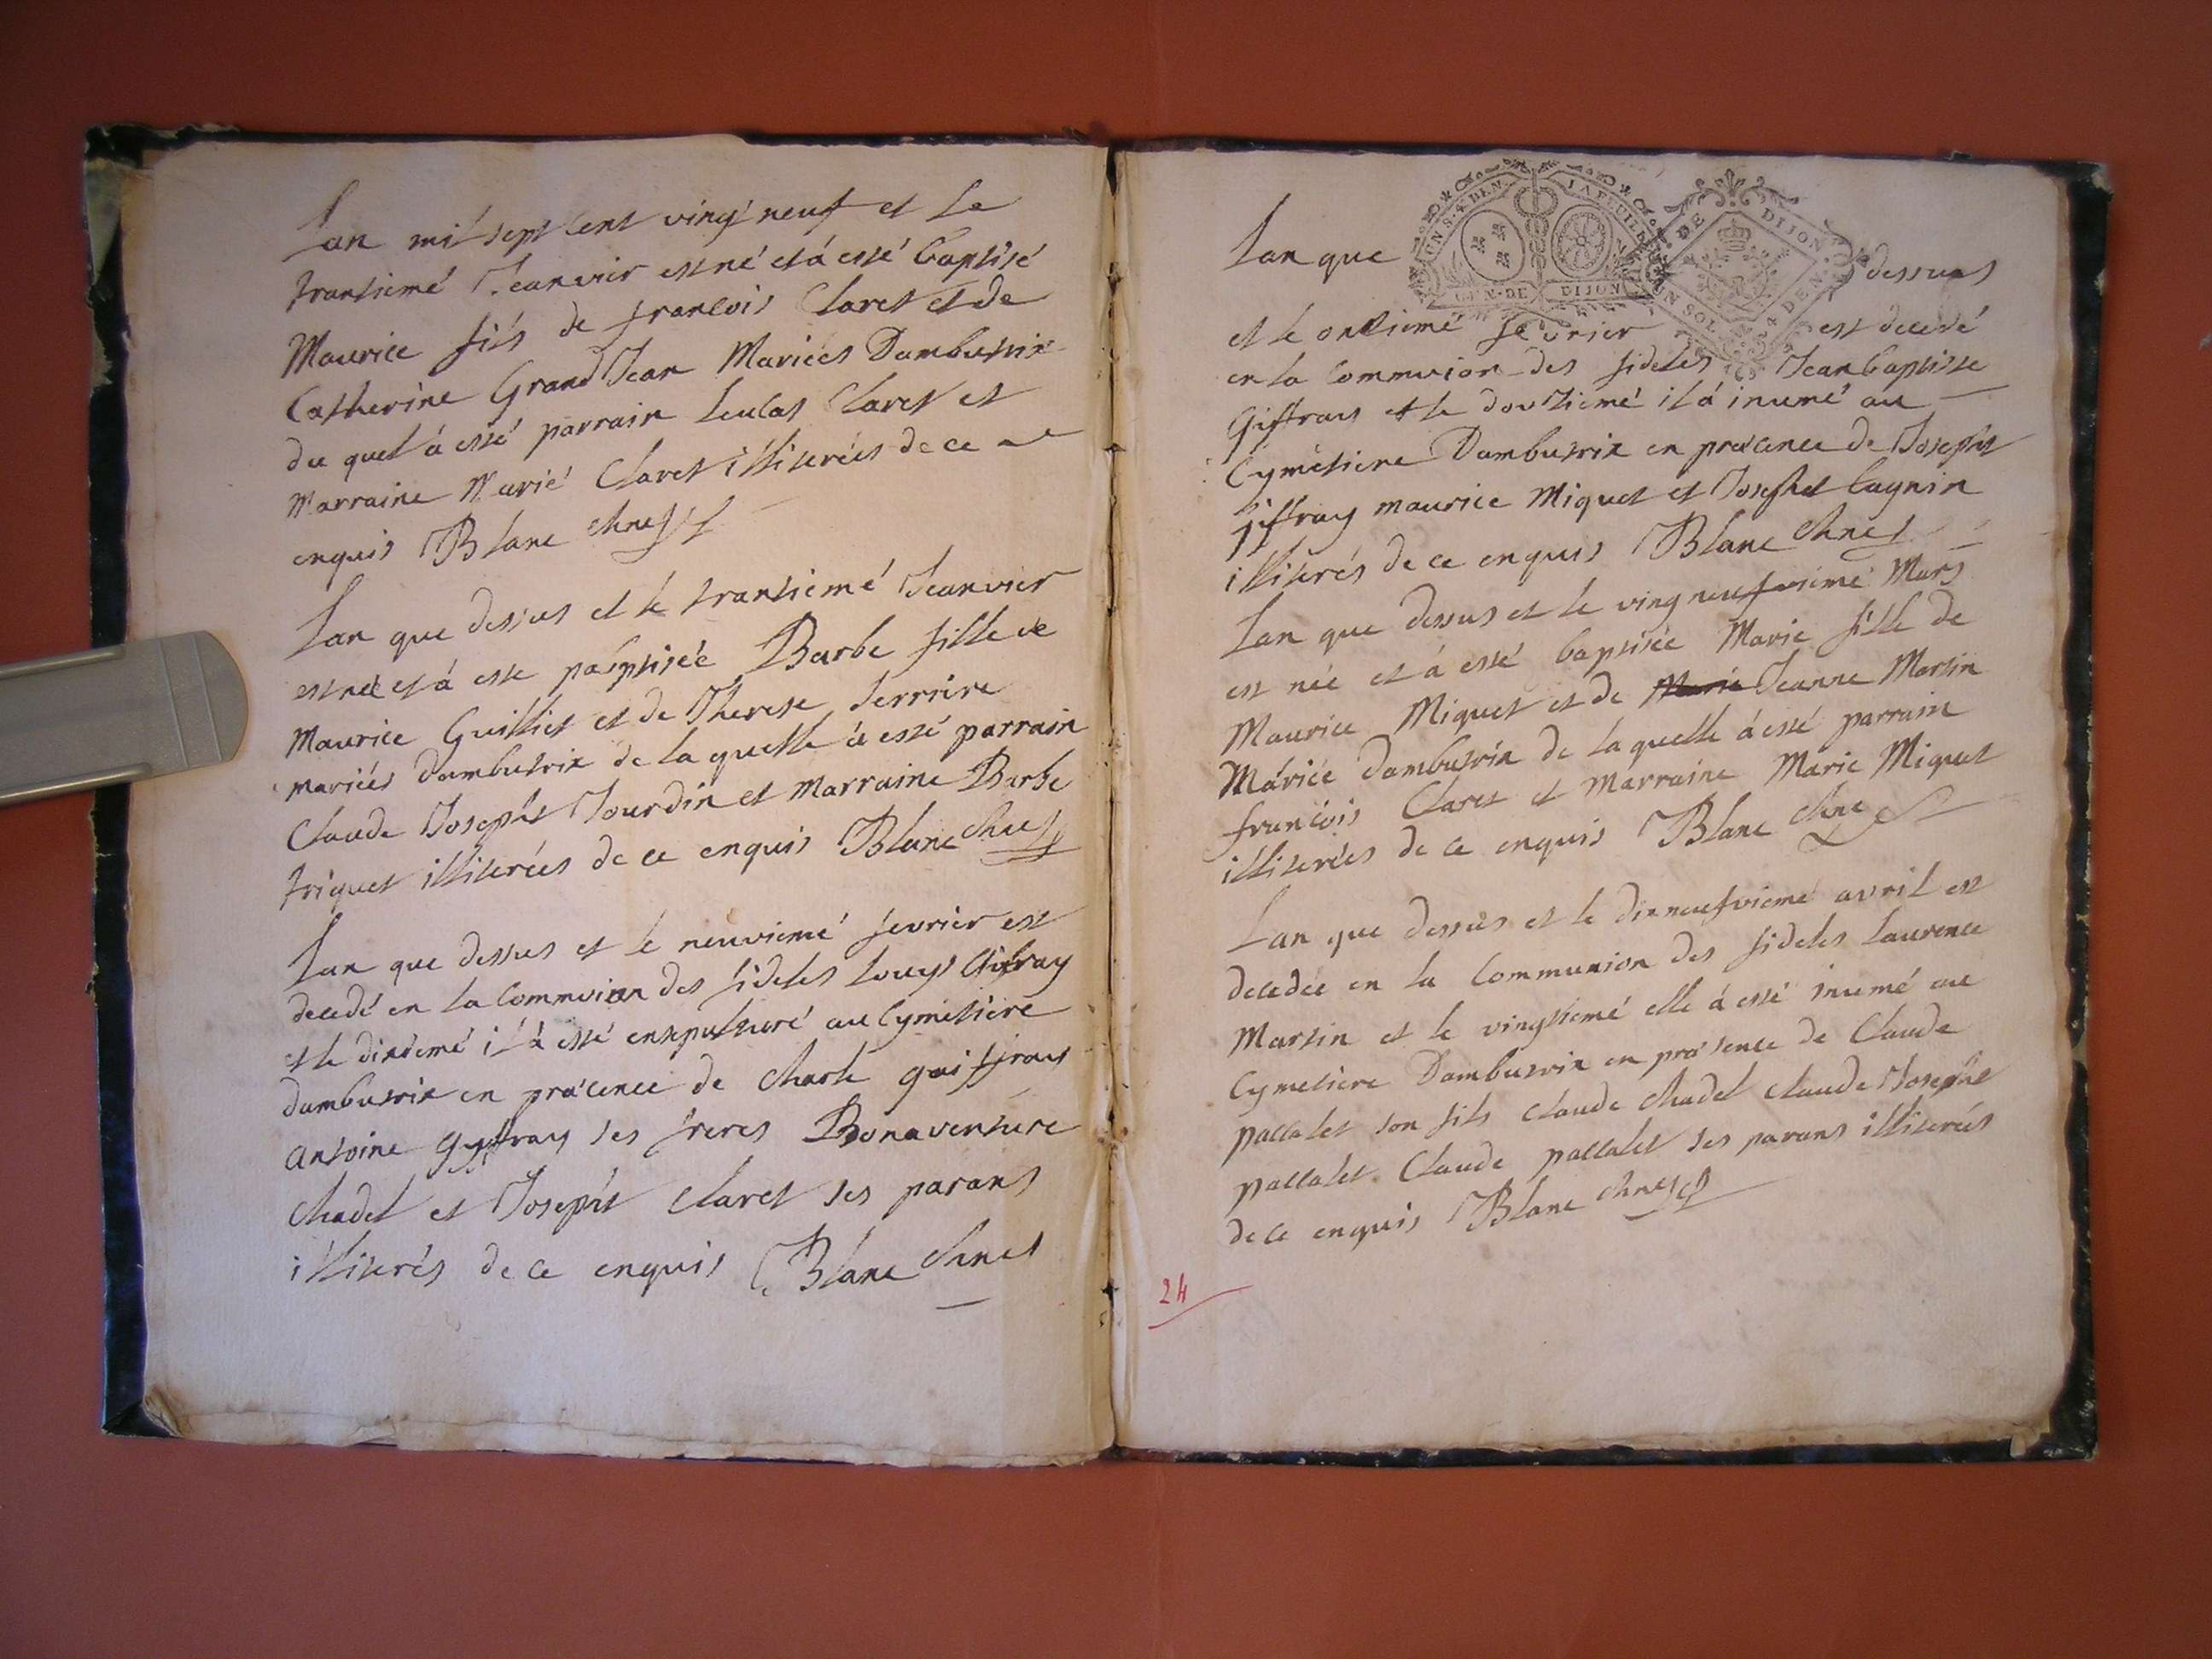 Lan mil sept cent ving neuf et le
trantiemé Jeanvier est né et á esté baptisé
Maurice fils de francois Claret et de
Catherine Grand Jean Mariées Dambutrix
du quel á esté parrain Leucas Claret et
Marraine Marié Claret illiterées de ce
enquis Blanc
Lan que dessus et le trantiemé Jeanvier
est neé et á esté paptisée Barbe fille de
Maurice Guilliet et de Therese Serriere
mariées dambutrix de la quelle á esté parrain
Claude Joseph Jourdin et Marraine Barbe
triquet illiterées de ce enquis Blanc
Lan que dessus et le neuviemé fevrier est
decedé en la Commuion des fideles Louys
et le dixiemé il á esté ensepulturé au Cymetiere
dambutrix en præcence de Charle gaiffray
Antoine ses freres Bonaventure
Chadel et Joseph Claret ses parans
illiterés de ce enquis Blanc
Lan que dessus
UN S. 4 DEN. LA FEUILLE GEN. DE DIJON
DE DIJON UN SOL 4 DEN.
et le onziemé fevrier est decedé
en la Commuion des fideles Jean baptiste
Giffray et le douziemé il á inumé au
Cymetiere Dambutrix en præcence de Joseph
giffray maurice Miquet et Joseph Cagnin
illiterés de ce enquis Blanc
Lan que dessus et le ving neufviemé Mars
est née et á esté baptisée Marie fille de
Maurice Miquet et de Marie Jeanne Martin
Máriée dambutrix de la quelle á esté parrain
francóis Claret et Marraine Marie Miquet
illiterées de ce enquis Blanc
Lan que dessus et le dixneufvieme avril est
decedée en la Communion des fideles Laurence
Martin et le vingtiemé elle á esté inumé au
Cymetiere Dambutrix en præsence de Claude
pallatet son fils Claude Chadel Claude Joseph
pallatet Claude pallatet ses parans illiterées
de ce enquis Blanc
24